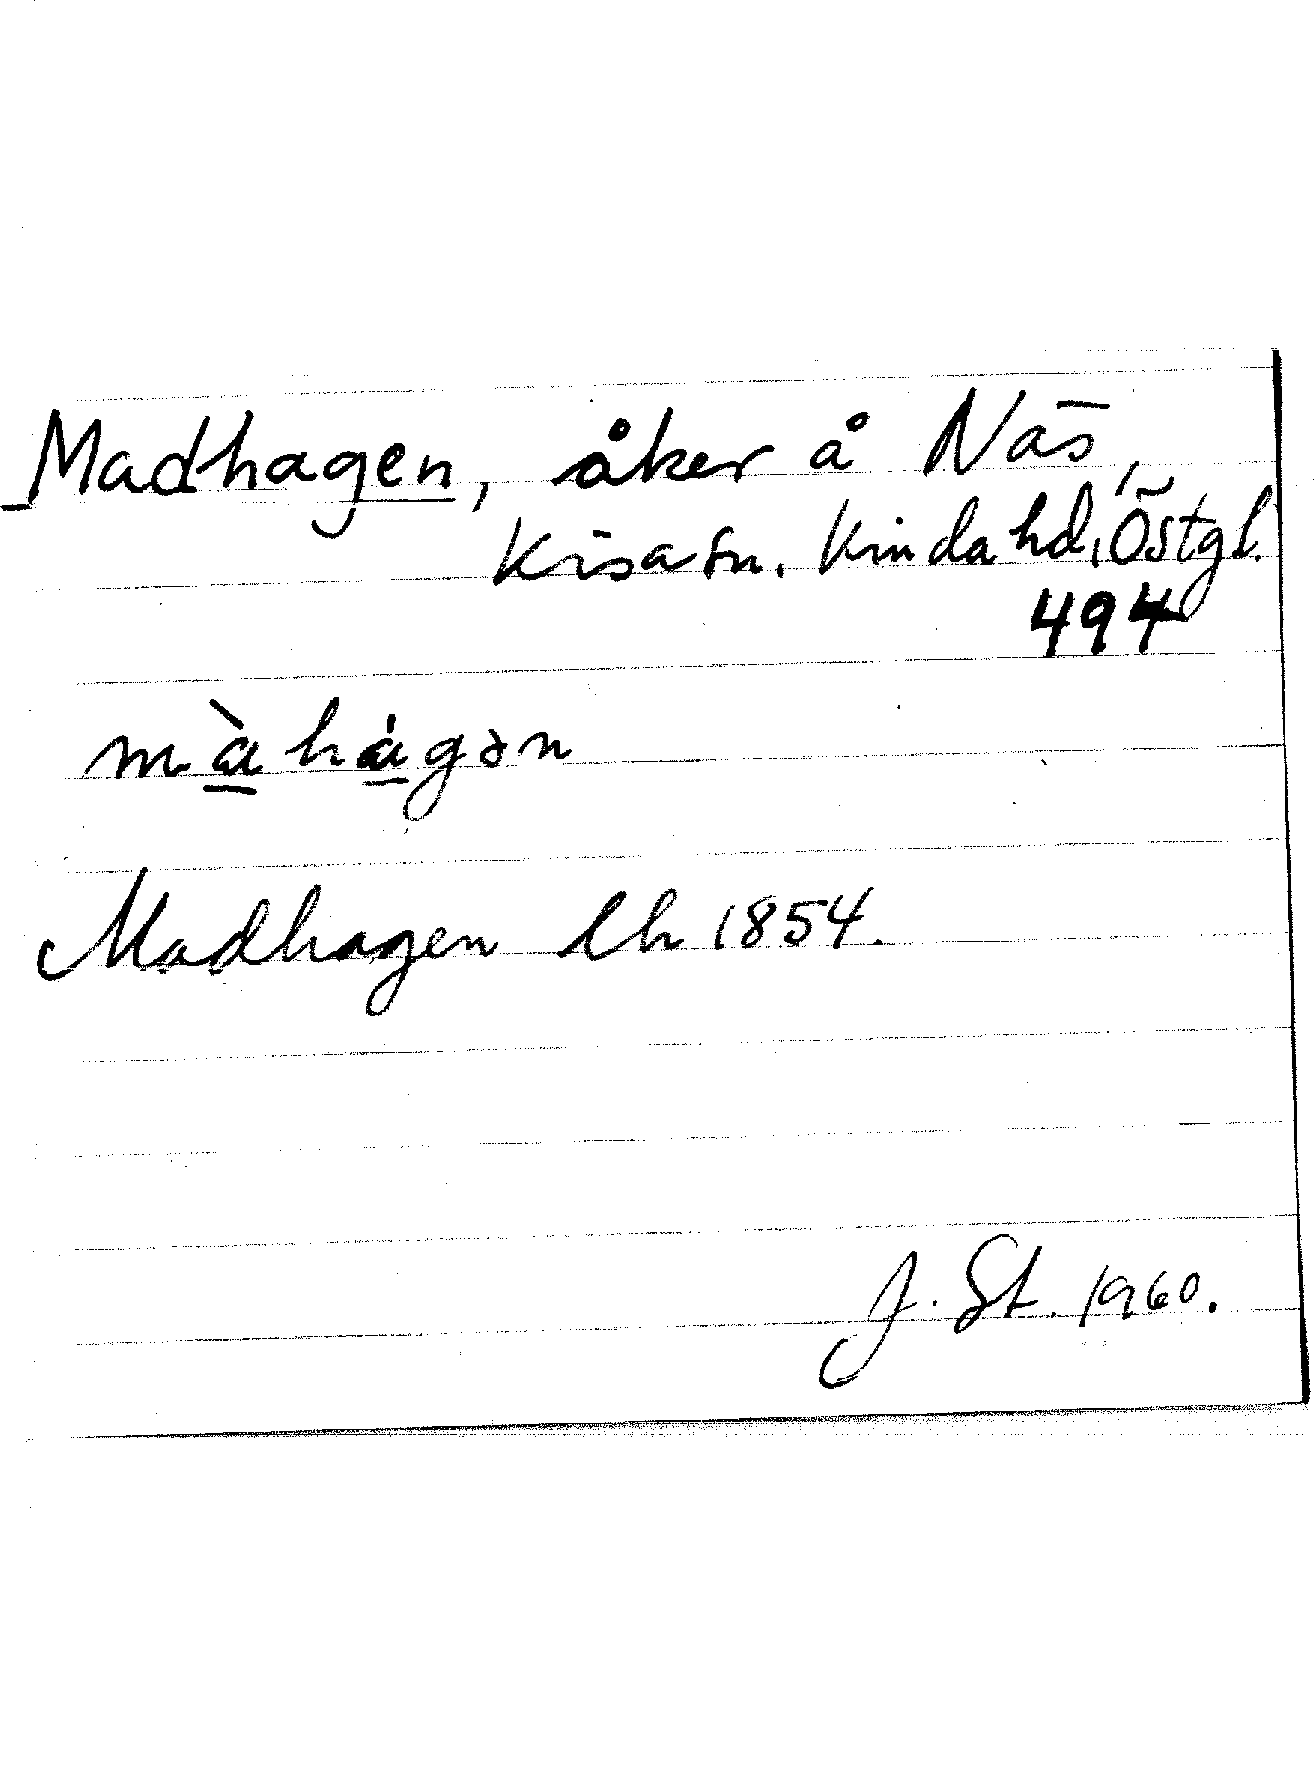 Madhagen, åker å Näs,
Kisa sn. Kinda hd, Östgl.
494
màhágən
Madhagen lh 1854.
J. St. 1960.